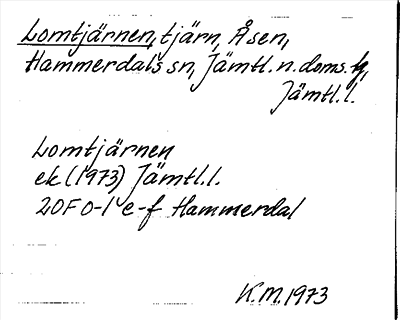 Lomtjärnen, tjärn, Åsen,
Hammerdal's sn, Jämtl. n. doms. tg,
Jämtl. l.
Lomtjärnen
ek (1973) Jämtl. l.
20F 0-1 e-f Hammerdal
K.M. 1973